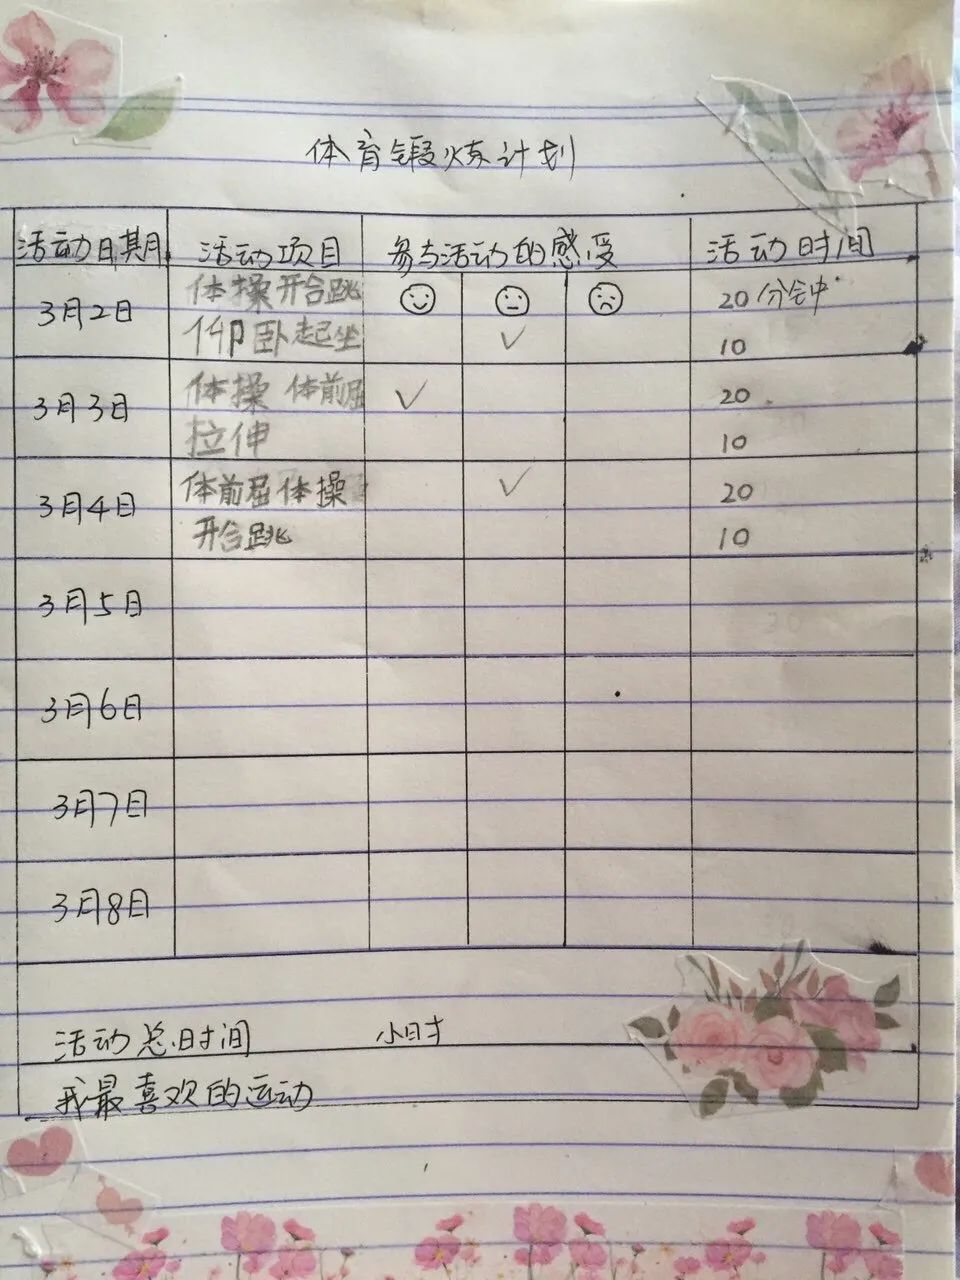 体育锻炼计划
活动日期 活动项目 参与活动的感受 活动时间
3月2日 体操 开合跳 20分钟
仰卧起坐 ✓ 10
3月3日 体操 体前屈 ✓ 20
拉伸 10
3月4日 体前屈 体操 ✓ 20
开合跳 10
3月5日
3月6日
3月7日
3月8日
活动总时间 小时
我最喜欢的运动